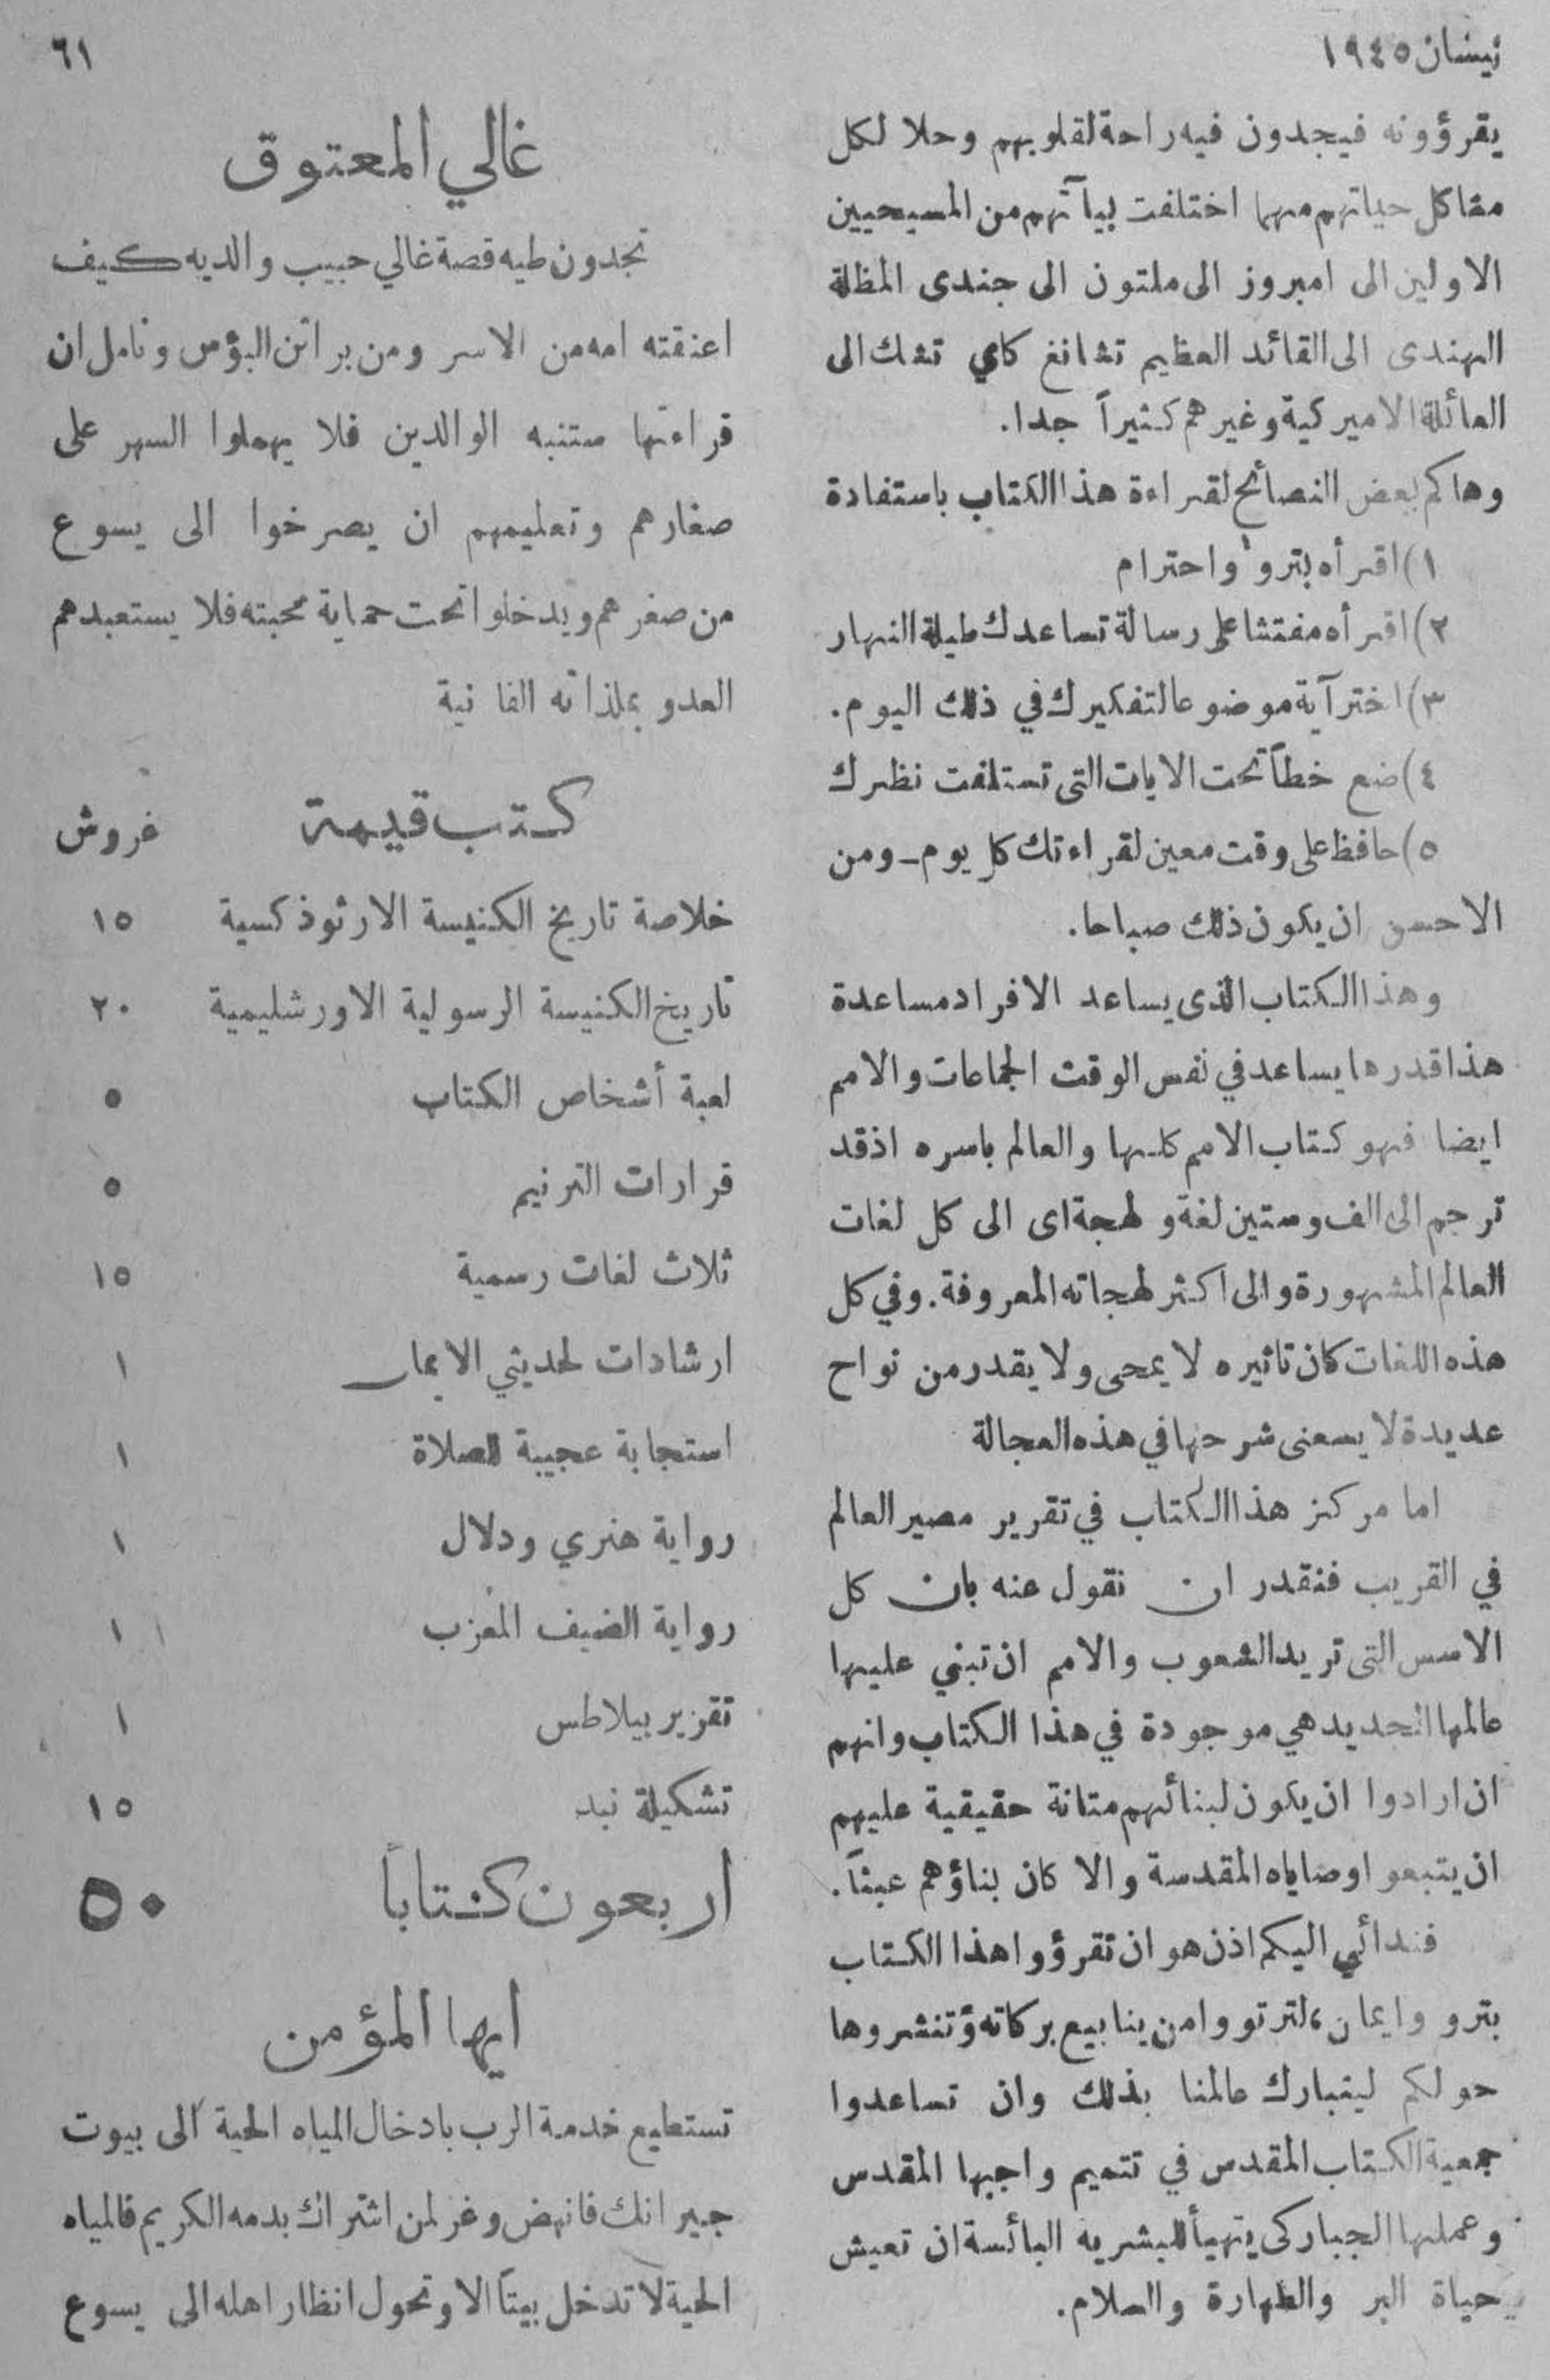 نيسان ١٩٤٥
٦١
يقرؤونه فيجدون فيه راحة لقلوبهم وحلا لكل
مشاكل حياتهم مهما اختلفت بيآتهم من المسيحيين
الاولين الى امبروز الى ملتون الى جندى المظلة
الهندى الى القائد العظيم تشانغ كاي تشك الى
العائلة الاميركية وغيرهم كثيراً جدا.
وهاكم بعض النصائح لقراءة هذا الكتاب باستفادة
١) اقرأه بترو واحترام
٢) اقرأه مفتشا على رسالة تساعدك طيلة النهار
٣) اختر آية موضوعا لتفكيرك في ذلك اليوم.
٤) ضع خطاً تحت الايات التى تستلفت نظرك
٥) حافظ على وقت معين لقراءتك كل يوم - ومن
الاحسن ان يكون ذلك صباحا.
وهذا الكتاب الذى يساعد الافراد مساعدة
هذا قدرها يساعد في نفس الوقت الجماعات والامم
ايضا فهو كتاب الامم كلها والعالم باسره اذ قد
ترجم الى الف وستين لغة ولهجة اى الى كل لغات
العالم المشهورة والى اكثر لهجاته المعروفة. وفي كل
هذه اللغات كان تاثيره لا يمحى ولا يقدر من نواح
عديدة لا يسعنى شرحها في هذه العجالة
اما مركز هذا الكتاب في تقرير مصير العالم
في القريب فنقدر ان نقول عنه بان كل
الاسس التى تريد الشعوب والامم ان تبني عليها
عالمها الجديد هي موجودة في هذا الكتاب وانهم
ان ارادوا ان يكون لبنائهم متانة حقيقية عليهم
ان يتبعوا وصاياه المقدسة والا كان بناؤهم عبثاً.
فندائي اليكم اذن هو ان تقرؤوا هذا الكتاب
بترو وايمان، لترتووا من ينابيع بركاته وتنشروها
حولكم ليتبارك عالمنا بذلك وان تساعدوا
جمعية الكتاب المقدس في تتميم واجبها المقدس
وعملها الجبار كى يتهيأ للبشريه البائسة ان تعيش
حياة البر والطهارة والسلام.
غالي المعتوق
تجدون طيه قصة غالي حبيب والديه كيف
اعتقته امه من الاسر ومن براثن البؤس ونامل ان
قراءتها ستنبه الوالدين فلا يهملوا السهر على
صغارهم وتعليمهم ان يصرخوا الى يسوع
من صغرهم ويدخلوا تحت حماية محبته فلا يستعبدهم
العدو بملذاته الفانية
كتب قيمة غروش
خلاصة تاريخ الكنيسة الارثوذكسية ١٥
تاريخ الكنيسة الرسولية الاورشليمية ٢٠
لعبة أشخاص الكتاب ٥
قرارات الترنيم ٥
ثلاث لغات رسمية ١٥
ارشادات لحديثي الايمان ١
استجابة عجيبة للصلاة ١
رواية هنري ودلال ١
رواية الضيف المعزب ١
تقرير بيلاطس ١
تشكيلة نبذ ١٥
اربعون كتاباً ٥٠
ايها المؤمن
تستطيع خدمة الرب بادخال المياه الحية الى بيوت
جيرانك فانهض وغز لمن اشتراك بدمه الكريم فالمياه
الحية لا تدخل بيتاً الا وتحول انظار اهله الى يسوع